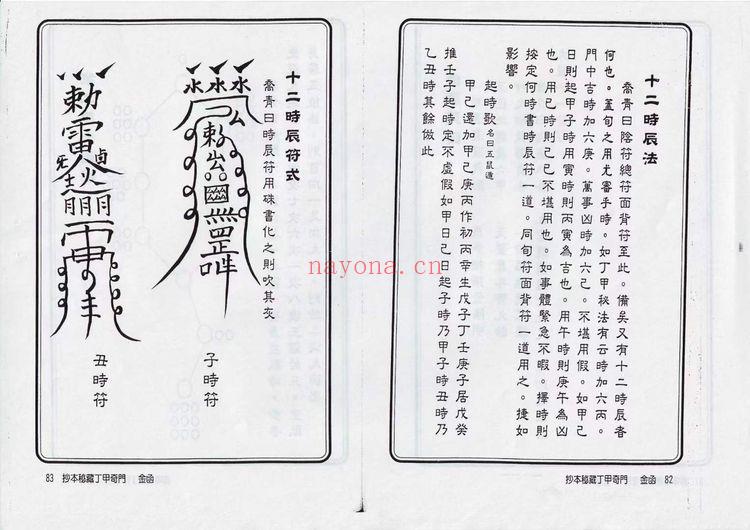 十二時辰法
喬青曰陰符總符面背符至此。備矣又有十二時辰者
何也。蓋旬之用尤審乎時。如丁甲秘法有云時加六丙。
門中吉時加六庚。萬事凶時加六己。不堪用假。如甲己
日則起甲子時用寅時則丙寅為吉也。用午時則庚午為凶
也。用巳時則己巳不堪用也。如事體緊急不暇。擇時則
按定何時書時辰符一道。同旬符面背符一道用之。捷如
影響。
起時歌 名曰五鼠遁
甲己還加甲乙庚丙作初丙辛生戊子丁壬庚子居戊癸
推壬子起時定不虛假如甲日己日起子時乃甲子時丑時乃
乙丑時其餘倣此
金函 82
抄本秘藏丁甲奇門
十二時辰符式
喬青曰時辰符用硃書化之則吹其灰
水 水 水
敕
子時符
敕
雷
先生
丑時符
83 抄本秘藏丁甲奇門 金函
nayona.cn